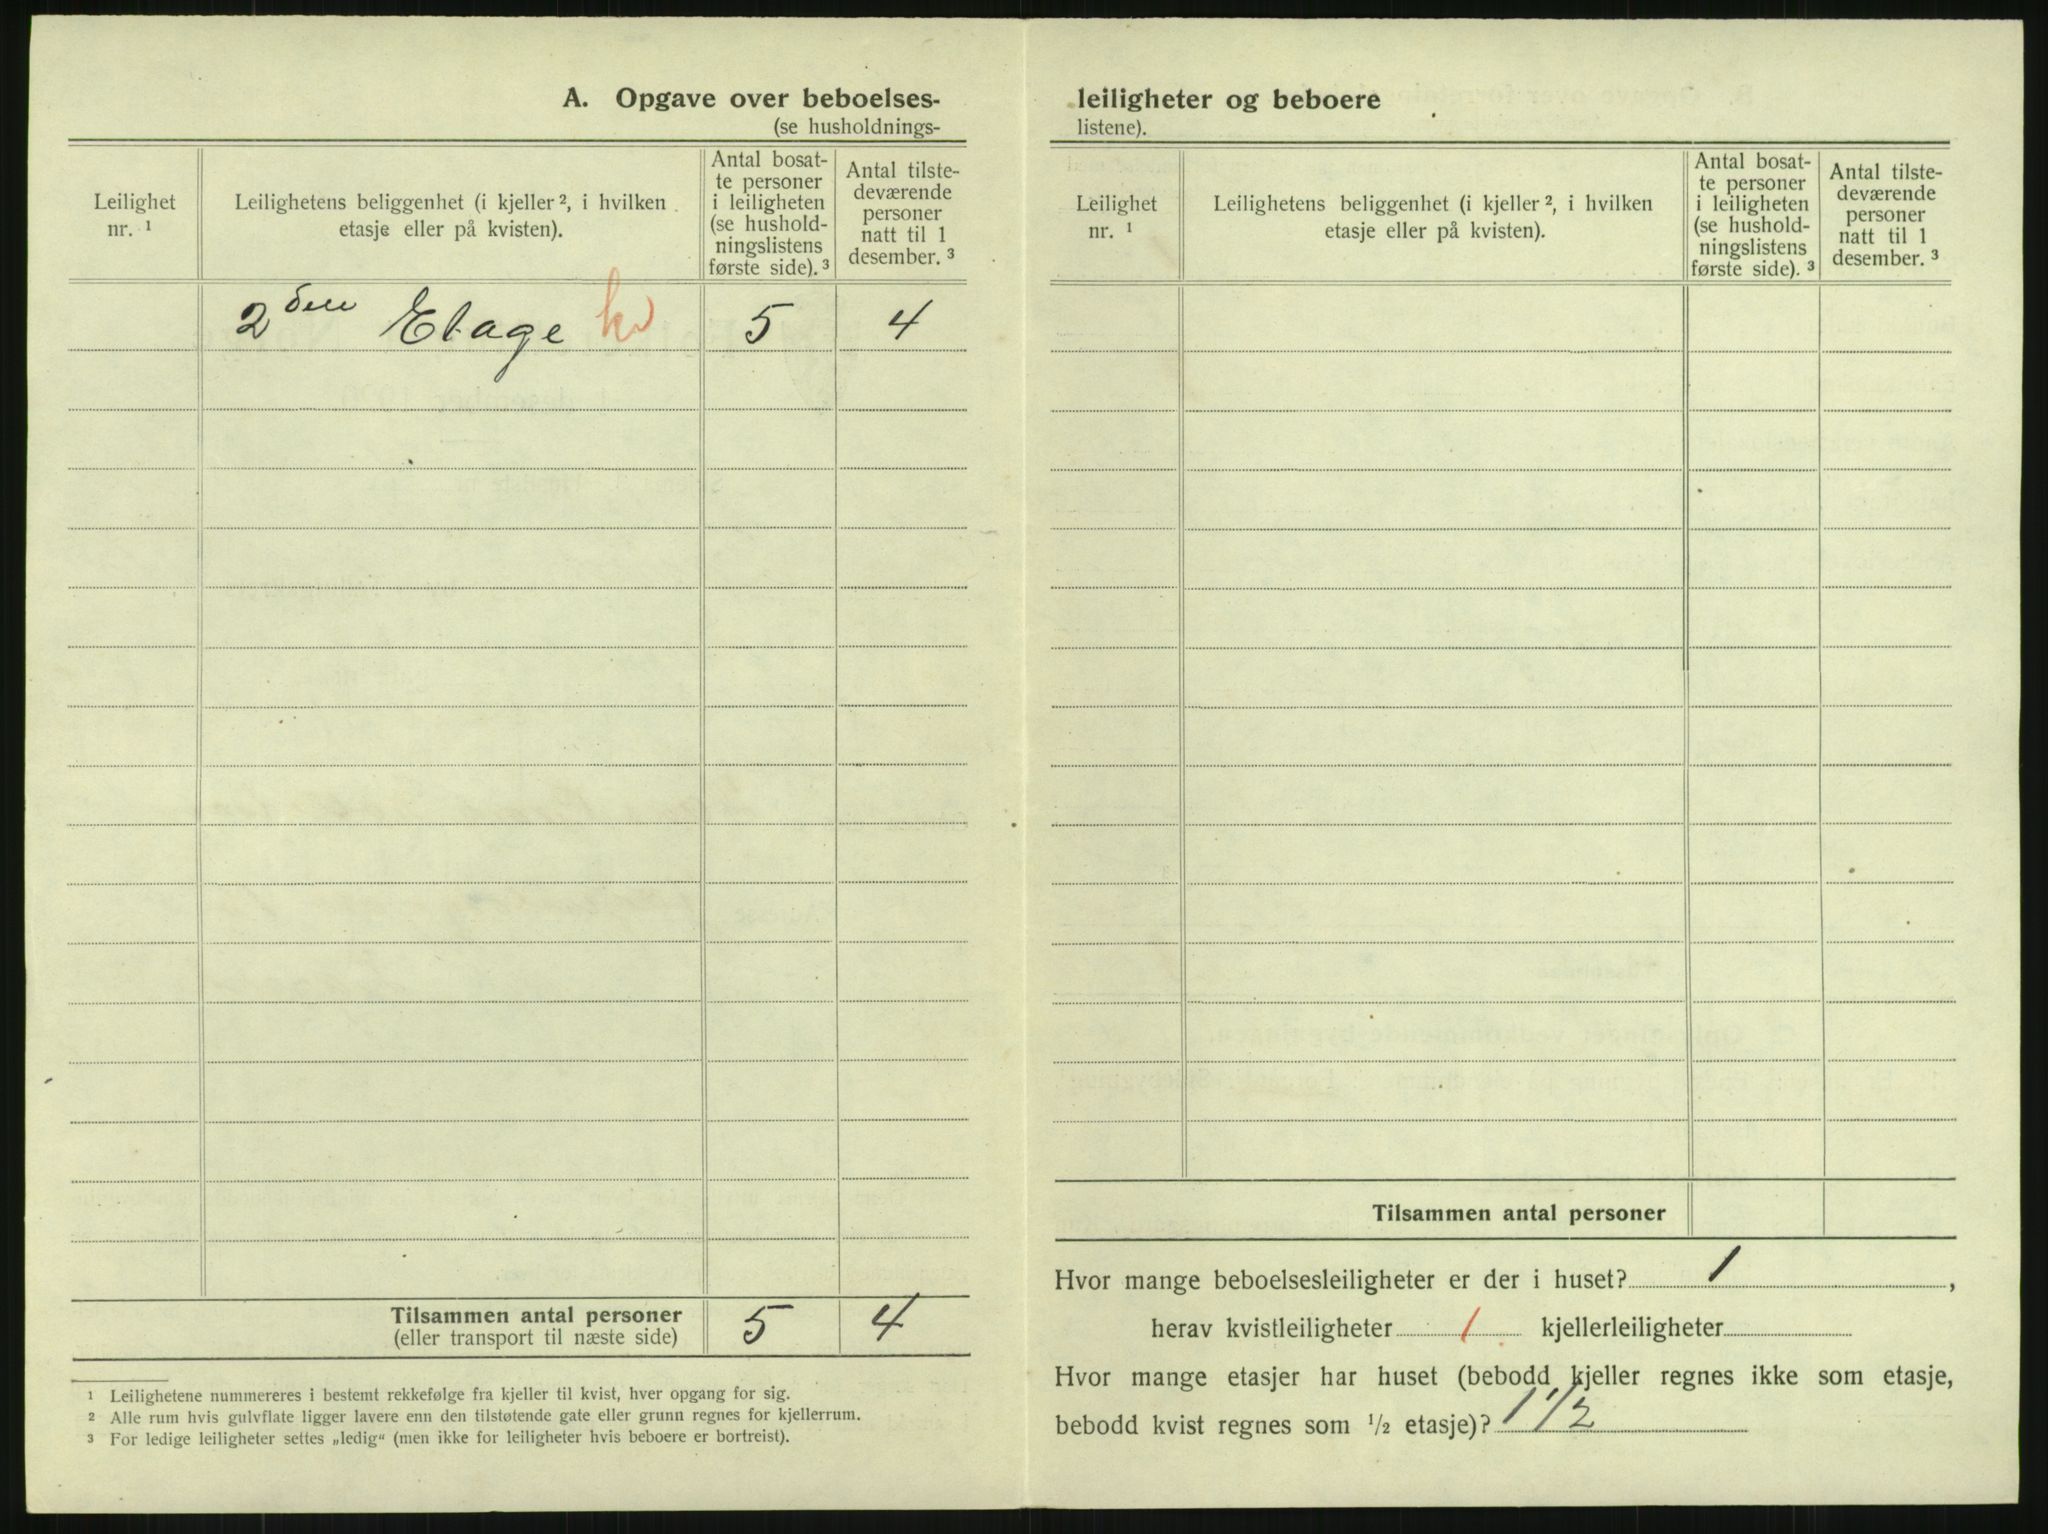 A. Opgave over beboelses-
(se husholdnings-
Leilighet
nr. ¹
Leilighetens beliggenhet (i kjeller ², i hvilken
etasje eller på kvisten).
Antal bosat-
te personer
i leiligheten
(se hushold-
ningslistens
første side). ³
Antal tilste-
deværende
personer
natt til 1
desember. ³
2den Etage kv 5 4
Tilsammen antal personer 5 4
(eller transport til næste side)
¹ Leilighetene nummereres i bestemt rekkefølge fra kjeller til kvist, hver opgang for sig.
² Alle rum hvis gulvflate ligger lavere enn den tilstøtende gate eller grunn regnes for kjellerrum.
³ For ledige leiligheter settes „ledig“ (men ikke for leiligheter hvis beboere er bortreist).
leiligheter og beboere
listene).
Leilighet
nr. ¹
Leilighetens beliggenhet (i kjeller ², i hvilken
etasje eller på kvisten).
Antal bosat-
te personer
i leiligheten
(se hushold-
ningslistens
første side). ³
Antal tilste-
deværende
personer
natt til 1
desember. ³
Tilsammen antal personer
Hvor mange beboelsesleiligheter er der i huset? 1 ,
herav kvistleiligheter 1 kjellerleiligheter
Hvor mange etasjer har huset (bebodd kjeller regnes ikke som etasje,
bebodd kvist regnes som ½ etasje)? 1 ½